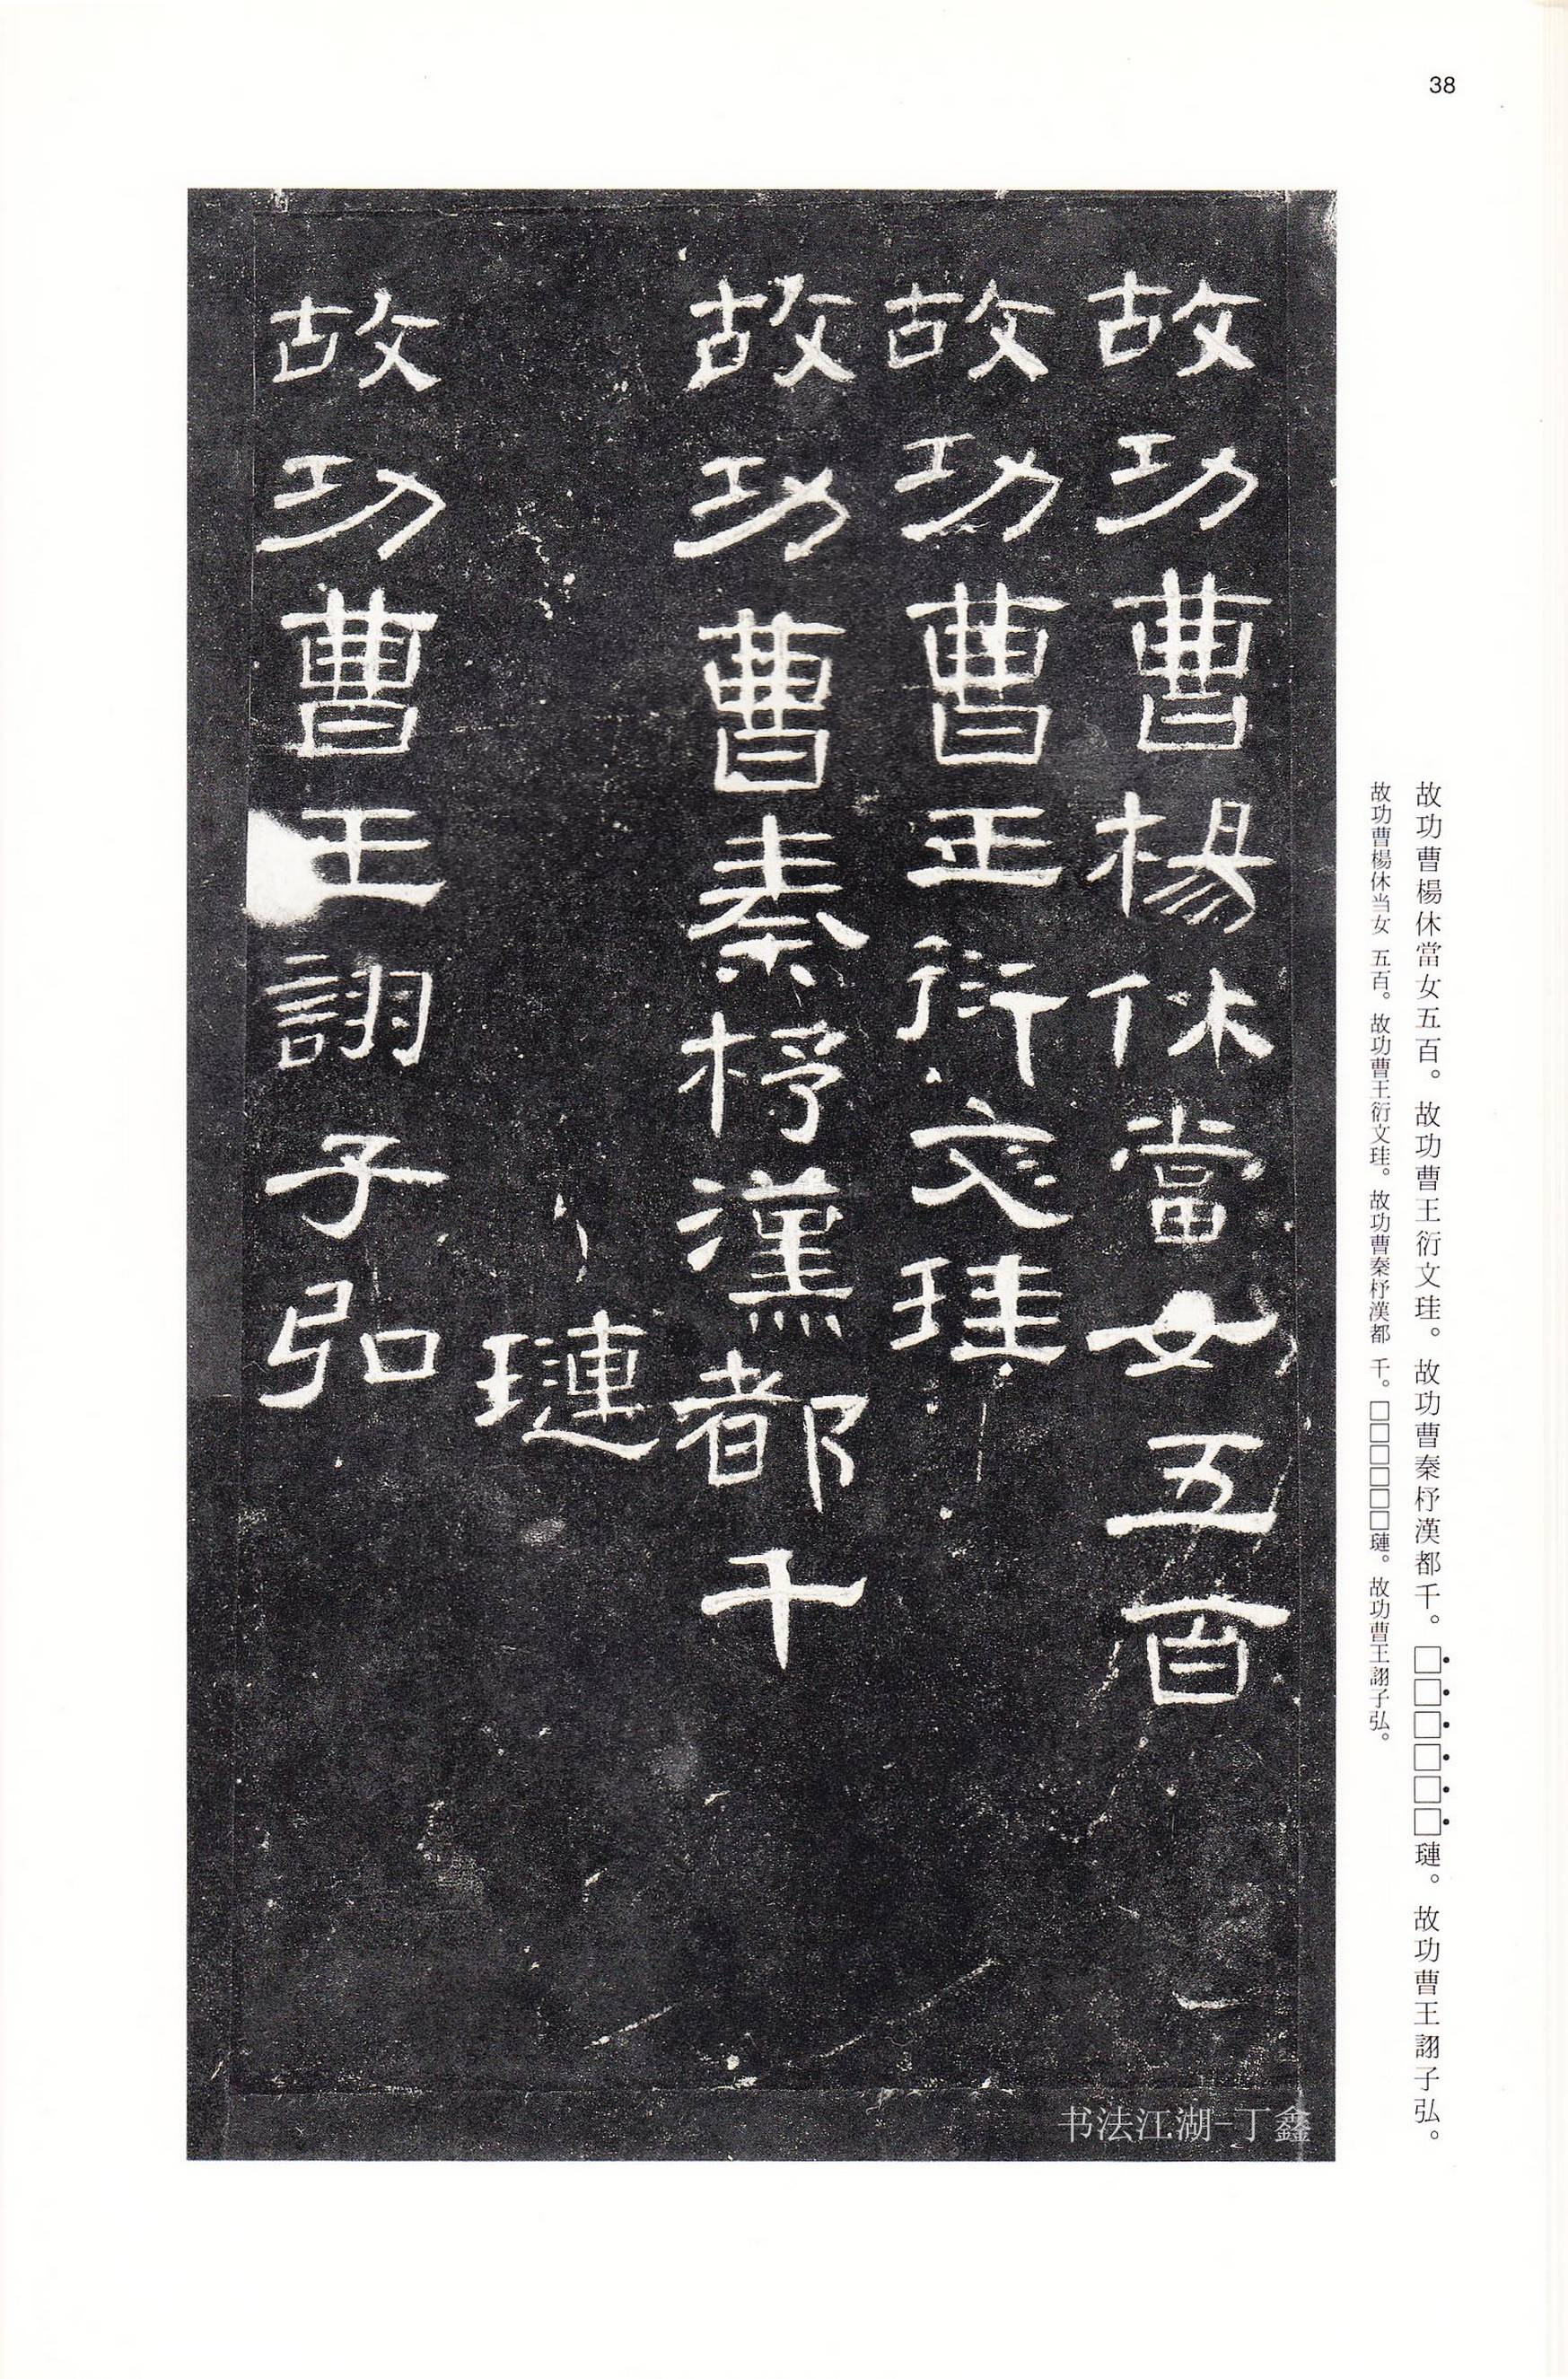 38
故功曹楊休當女五百。故功曹王衍文珪。故功曹秦杼漢都千。□□□□□□璉。故功曹王詡子弘。
故功曹楊休当女 五百。故功曹王衍文珪。故功曹秦杼漢都 千。□□□□□□璉。故功曹王詡子弘。
故功曹楊休當女五百
故功曹王衍文珪
故功曹秦杼漢都千
璉
故功曹王詡子弘
书法江湖-丁鑫